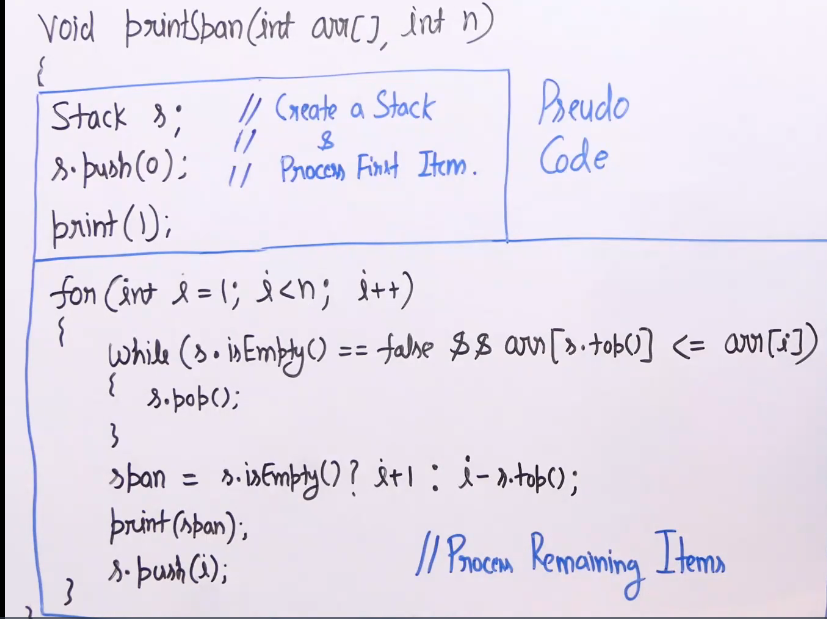 Void printSpan(int arr[], int n)
{
Stack s; // Create a Stack
// &
s.push(0); // Process First Item.
print(1);
Pseudo
Code
for(int i=1; i<n; i++)
{
while(s.isEmpty() == false && arr[s.top()] <= arr[i])
{ s.pop();
}
span = s.isEmpty()? i+1 : i-s.top();
print(span);
s.push(i);
// Process Remaining Items
}
}